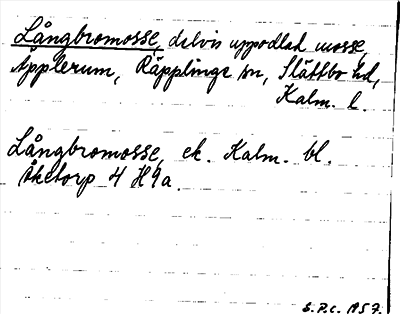 Långbromosse, delvis uppodlad mosse,
Äpplerum, Räpplinge sn, Slättbo hd,
Kalm. l.
Långbromosse, ek. Kalm. bl.
Åketorp 4 H 9a.
S.P.C. 1957.